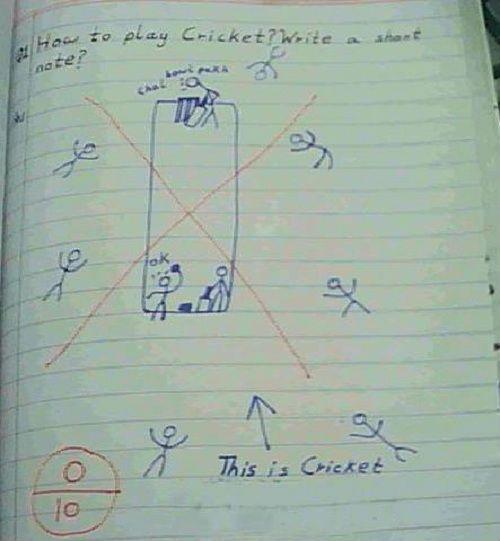 How to play Cricket? Write a short
note?
bowl
chal
ok
This is Cricket
0
10